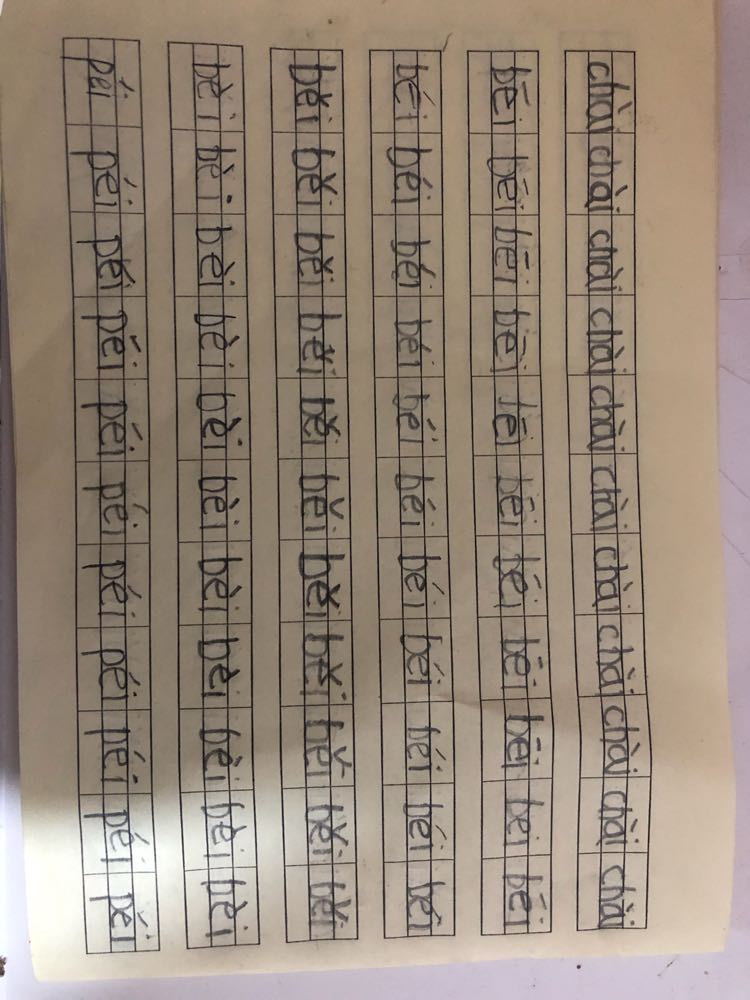 chài chài chài chài chài chài chài chài chài chài chài
bēi bēi bēi bēi bēi bēi bēi bēi bēi bei bēi
béi béi béi béi béi béi béi béi béi béi béi
běi běi běi běi běi běi běi běi běi běi běi
bèi bèi bèi bèi bèi bèi bèi bèi bèi bèi bèi
péi péi péi pěi péi péi péi péi péi péi péi